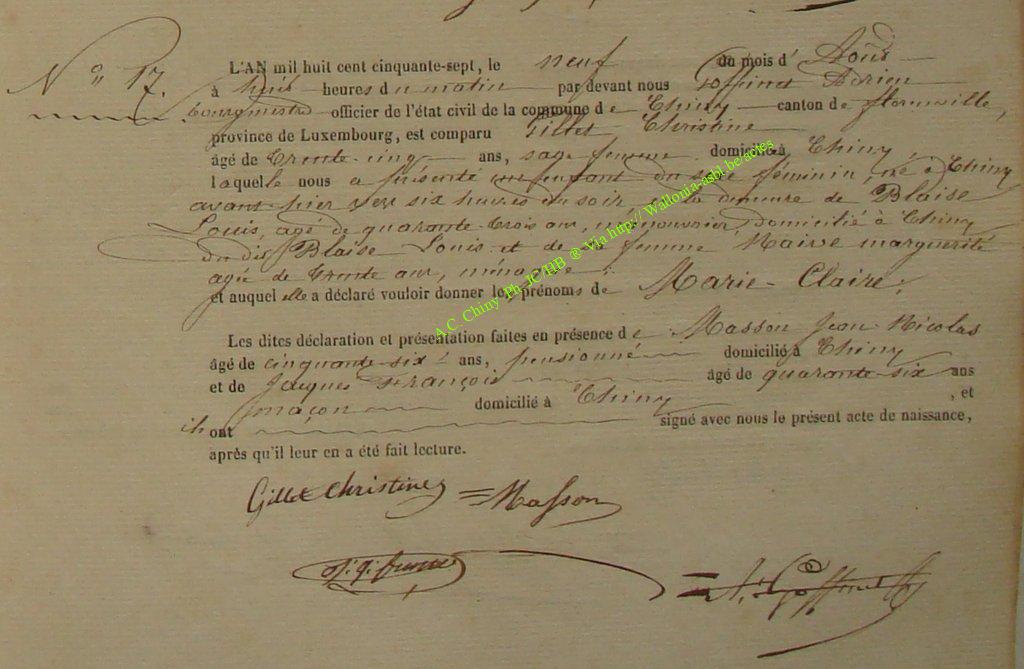 N° 17.
L'AN mil huit cent cinquante-sept, le neuf du mois d'Août
à huit heures du matin par devant nous Goffinet Adrien
bourgmestre officier de l'état civil de la commune de Chiny canton de florenville,
province de Luxembourg, est comparu Gillet Christine
âgé de trente-cinq ans, sage femme domicilié à Chiny,
laquelle nous a présenté un enfant du sexe féminin, né à Chiny
avant-hier vers six heures du soir, la demeure de Blaise
Louis, agé de quarante-trois ans, domicilié à Chiny
du dit Blaise Louis et de sa femme marguerite
agée de trente ans, ménagère;
et auquel elle a déclaré vouloir donner les prénoms de Marie-Claire.
Les dites déclaration et présentation faites en présence de Masson Jean Nicolas
âgé de cinquante-six ans, pensionné domicilié à Chiny
et de Jacques François âgé de quarante-six ans
maçon domicilié à Chiny, et
ils ont signé avec nous le présent acte de naissance,
après qu'il leur en a été fait lecture.
Gillet Christine = Masson
= A. Goffinet
A.C. Chiny Ph JC/HB ® Via http:// Wallonia-asbl.be/actes